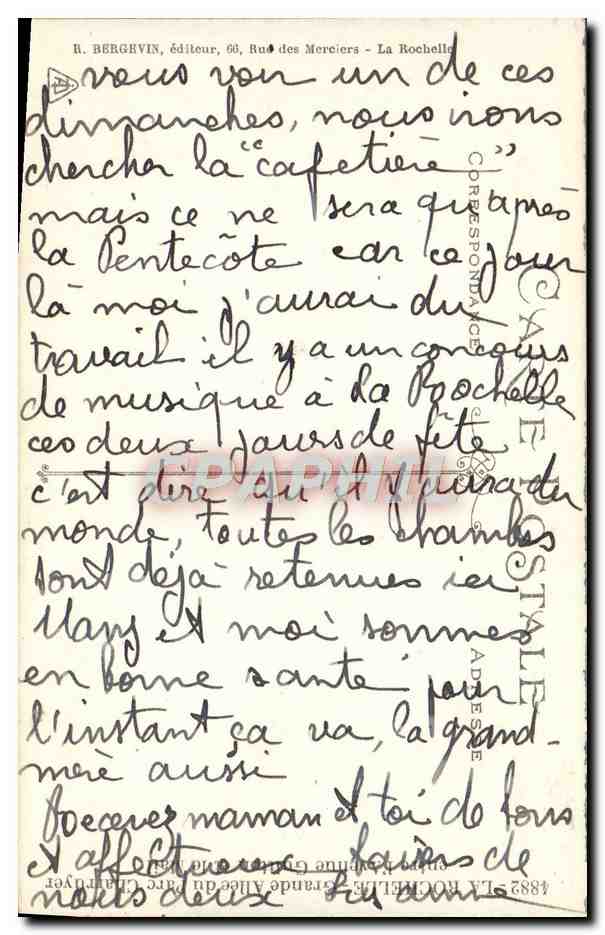 R. BERGEVIN, éditeur, 66, Rue des Merciers - La Rochelle
vous voir un de ces
dimanches, nous irons
chercher la "cafetière"
mais ce ne sera qu'après
la Pentecôte car ce jour
là moi j'aurai du
travail il y a un concours
de musique à La Rochelle
ces deux jours de fête
c'est dire qu'il y aura du
monde, toutes les chambres
sont déjà retenues ici
et moi sommes
en bonne santé pour
l'instant ça va, la grand-
mère aussi
Recevez maman et toi de bons
et affectueux baisers de
nous deux Suzanne
CARTE POSTALE
CORRESPONDANCE
ADRESSE
4882 - LA ROCHELLE - Grande Allée du Parc Charruyer
entre l'Avenue Guiton et le Mail
CPAPHIL